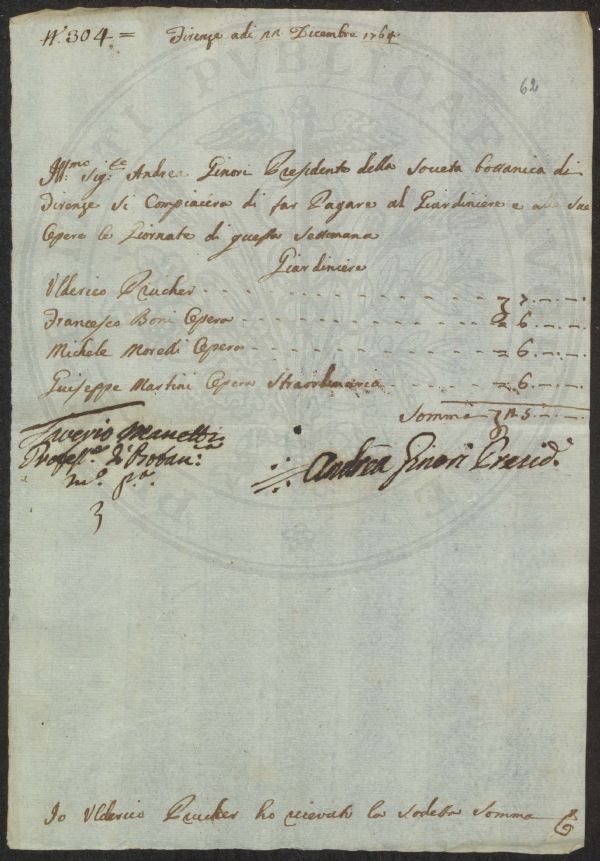 N.° 304 =
Firenze adi 22 Dicembre 1764
62
Ill:mo Sig:re Andrea Ginori Presidente della Società bottanica di
Firenze si Conpiacerà di far Pagare al Giardiniere e alle Sue
Opere le Giornate di questa Settimana
Giardiniere
Ulderico Prucher
Francesco Boni Opera = 6. —. —.
Michele Morelli Opera = 6. —. —.
Guiseppe Martini Opera Straordinaria = 6. —. —.
Somma
Saverio Manetti
Profess:re di Botan:ca
m:o p:a
Andrea Ginori Presid:e
Io Ulderico Prucher ho ricevuti la Sodetta Somma